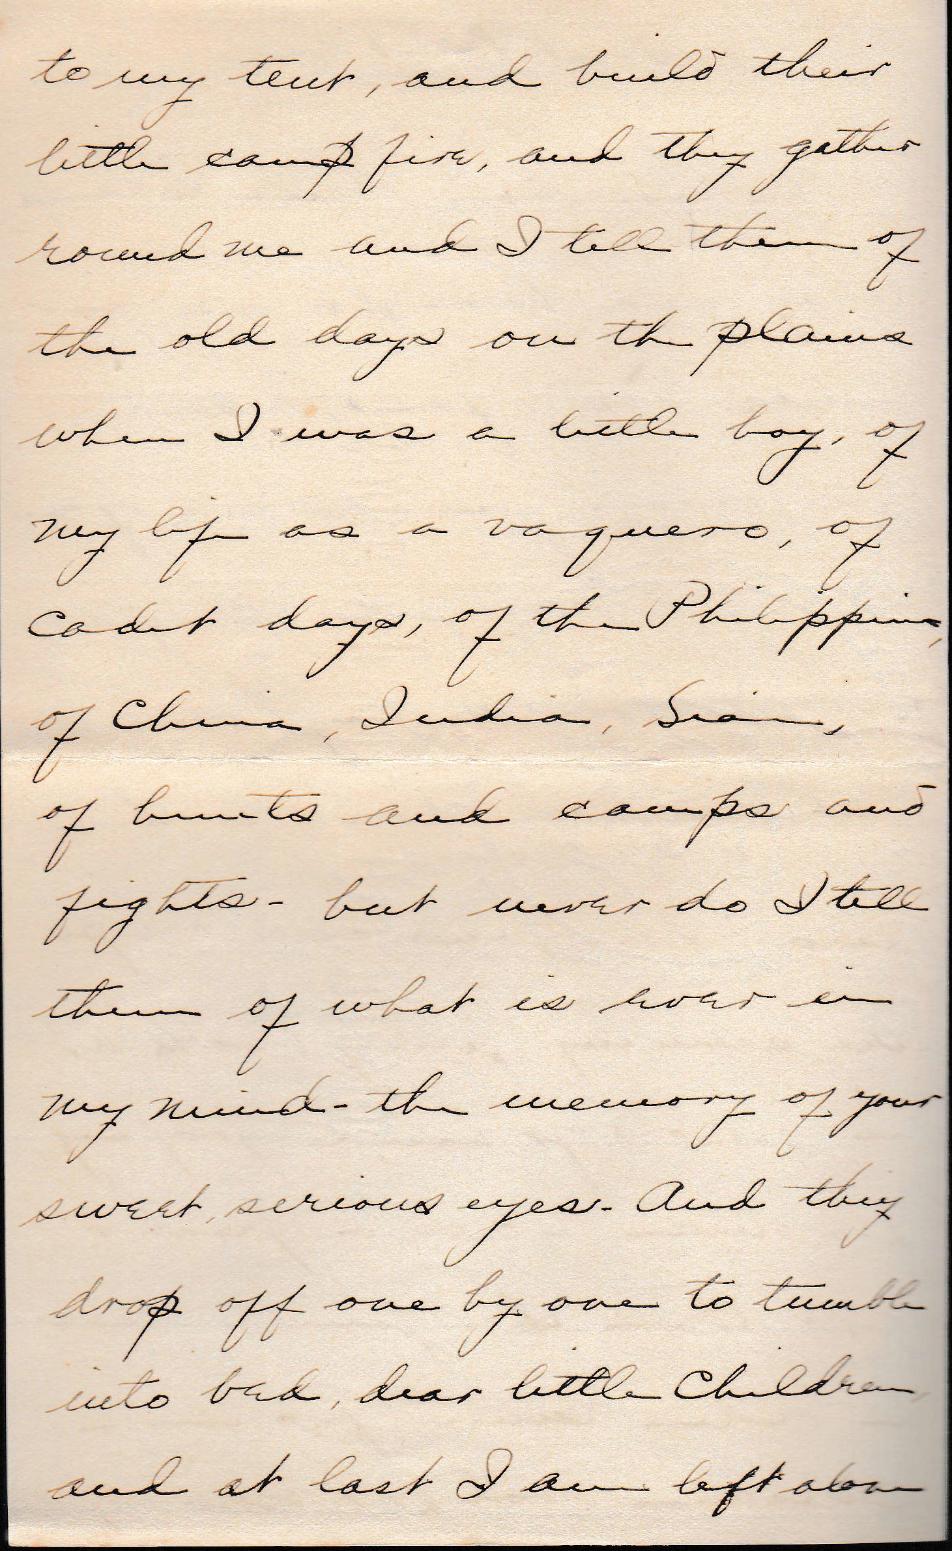 to my tent, and build their
little camp fire, and they gather
round me and I tell them of
the old days on the plains
when I was a little boy, of
my life as a vaquero, of
cadet days, of the Philippines,
of China, India, Siam,
of hunts and camps and
fights - but never do I tell
them of what is ever in
my mind - the memory of your
sweet, serious eyes - And they
drop off one by one to tumble
into bed, dear little children,
and at last I am left alone